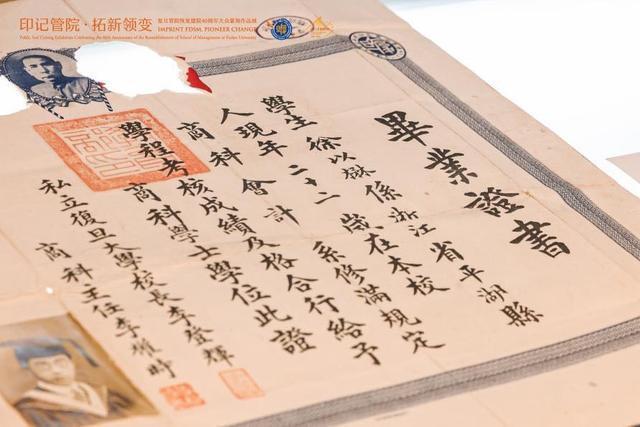 印记管院·拓新领变
复旦管院恢复建院40周年大众篆刻作品展
IMPRINT FDSM, PIONEER CHANGE
Public Seal Cutting Exhibition Celebrating the 40th Anniversary of the Reestablishment of School of Management at Fudan University
畢業證書
學生徐以楙係浙江省平湖縣
人現年二十二歲在本校
商科會計系修滿規定
學程考核成績及格合行給予
商科學士學位此證
私立復旦大學校長李登輝
商科主任李權時